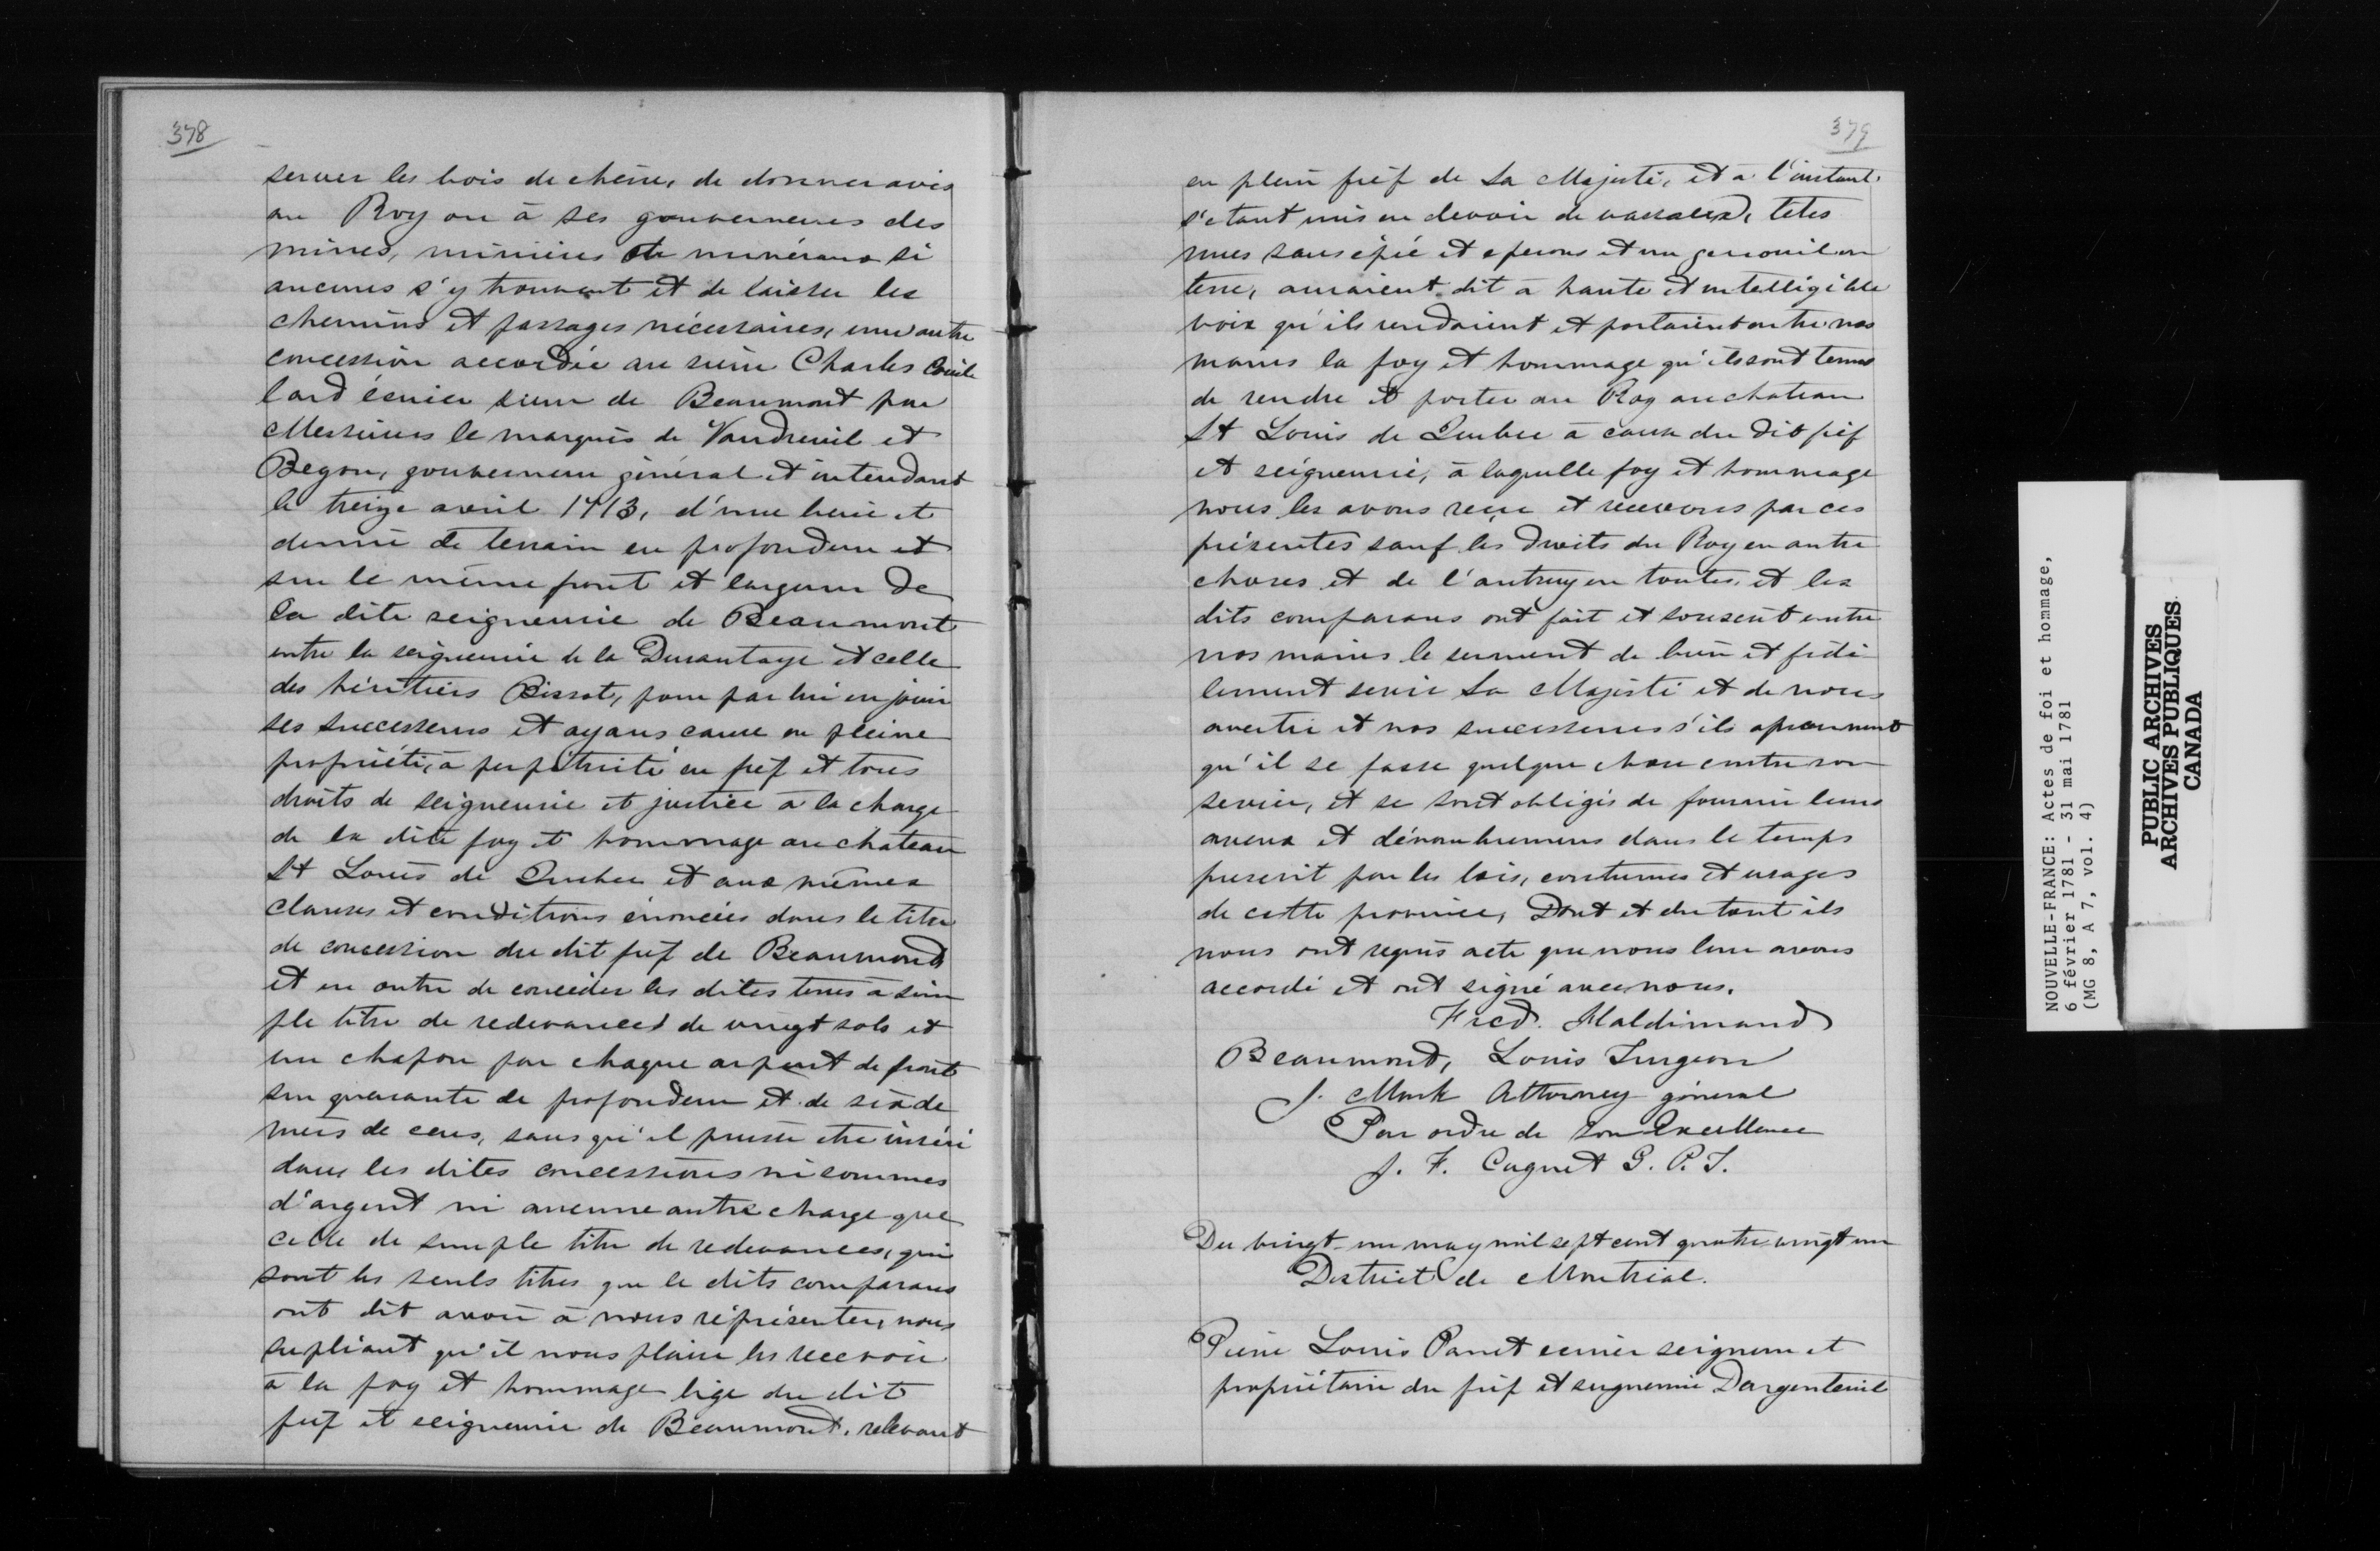 378
server les bois de chêne, de donner avis
au Roy ou à ses gouverneurs des
mines, minières ou minéraux si
aucunes s'y trouvent et de laisser les
chemins et passages nécessaires, une autre
concession accordée au sieur Charles Couil
lard écuier sieur de Beaumont par
Messieurs le marquis de Vaudreuil et
Begon, gouverneur général et intendant
le treize avril 1713, d'une lieue et
demie de terrain en profondeur et
sur le même front et largeur de
la dite seigneurie de Beaumont
entre la seigneurie de la Durantaye et celle
des héritiers Bissot, pour par lui en jouir
ses successeurs et ayans cause en pleine
propriété, à perpétuité en fief et tous
droits de seigneurie et justice à la charge
de la dite foy et hommage au chateau
St Louis de Quebec et aux mêmes
clauses et conditions énoncées dans le titre
de concession du dit fief de Beaumont
et en outre de concéder les dites terres à sim
ple titre de redevances de vingt sols et
un chapon par chaque arpent de front
sur quarante de profondeur et de six de
niers de cens, sans qu'il puisse etre inséré
dans les dites concessions ni sommes
d'argent ni aucune autre charge que
celle de simple titre de redevances, qui
sont les seuls titres que le dits comparans
ont dit avoir à nous réprésenter, nous
supliant qu'il nous plaise les recevoir
à la foy et hommage lige du dit
fief et seigneurie de Beaumont, relevant
379
en plein fief de Sa Majesté, et à l'instant
s'etant mis en devoir de vassaux, tetes
nues sans épée et eperons et un genouil en
terre, auraient dit a haute et intelligible
voix qu'ils rendaient et portaient entre nos
mains la foy et hommage qu'ils sont tenus
de rendre et porter au Roy au chateau
St Louis de Quebec à cause du dit fief
et seigneurie, à laquelle foy et hommage
nous les avons reçu et recevons par ces
présentes sauf les droits du Roy en autre
choses et de l'autruy en toutes, et les
dits comparans ont fait et souscrit entre
nos mains le serment de bien et fidè
lement servir Sa Majesté et de nous
avertir et nos successeurs s'ils aprennent
qu'il se fasse quelque chose contre son
service, et se sont obligés de fournir leurs
aveux et dénombremens dans le temps
prescrit par les lois, coutumes et usages
de cette province, Dont et du tout ils
nous ont requis acte que nous leur avons
accordé et ont signé avec nous.
Fred. Haldimand
Beaumont, Louis Turgeon
J. Monk Attorney général
Par ordre de son Excellence
J. F. Cugnet G. P. T.
Du vingt-un may mil sept cent quatre vingt un
District de Montréal.
Pierre Louis Panet ecuier seigneur et
propriétaire du fief et seigneurie Dargenteuil
NOUVELLE-FRANCE: Actes de foi et hommage,
6 février 1781 - 31 mai 1781
(MG 8, A 7, vol. 4)
PUBLIC ARCHIVES
ARCHIVES PUBLIQUES
CANADA